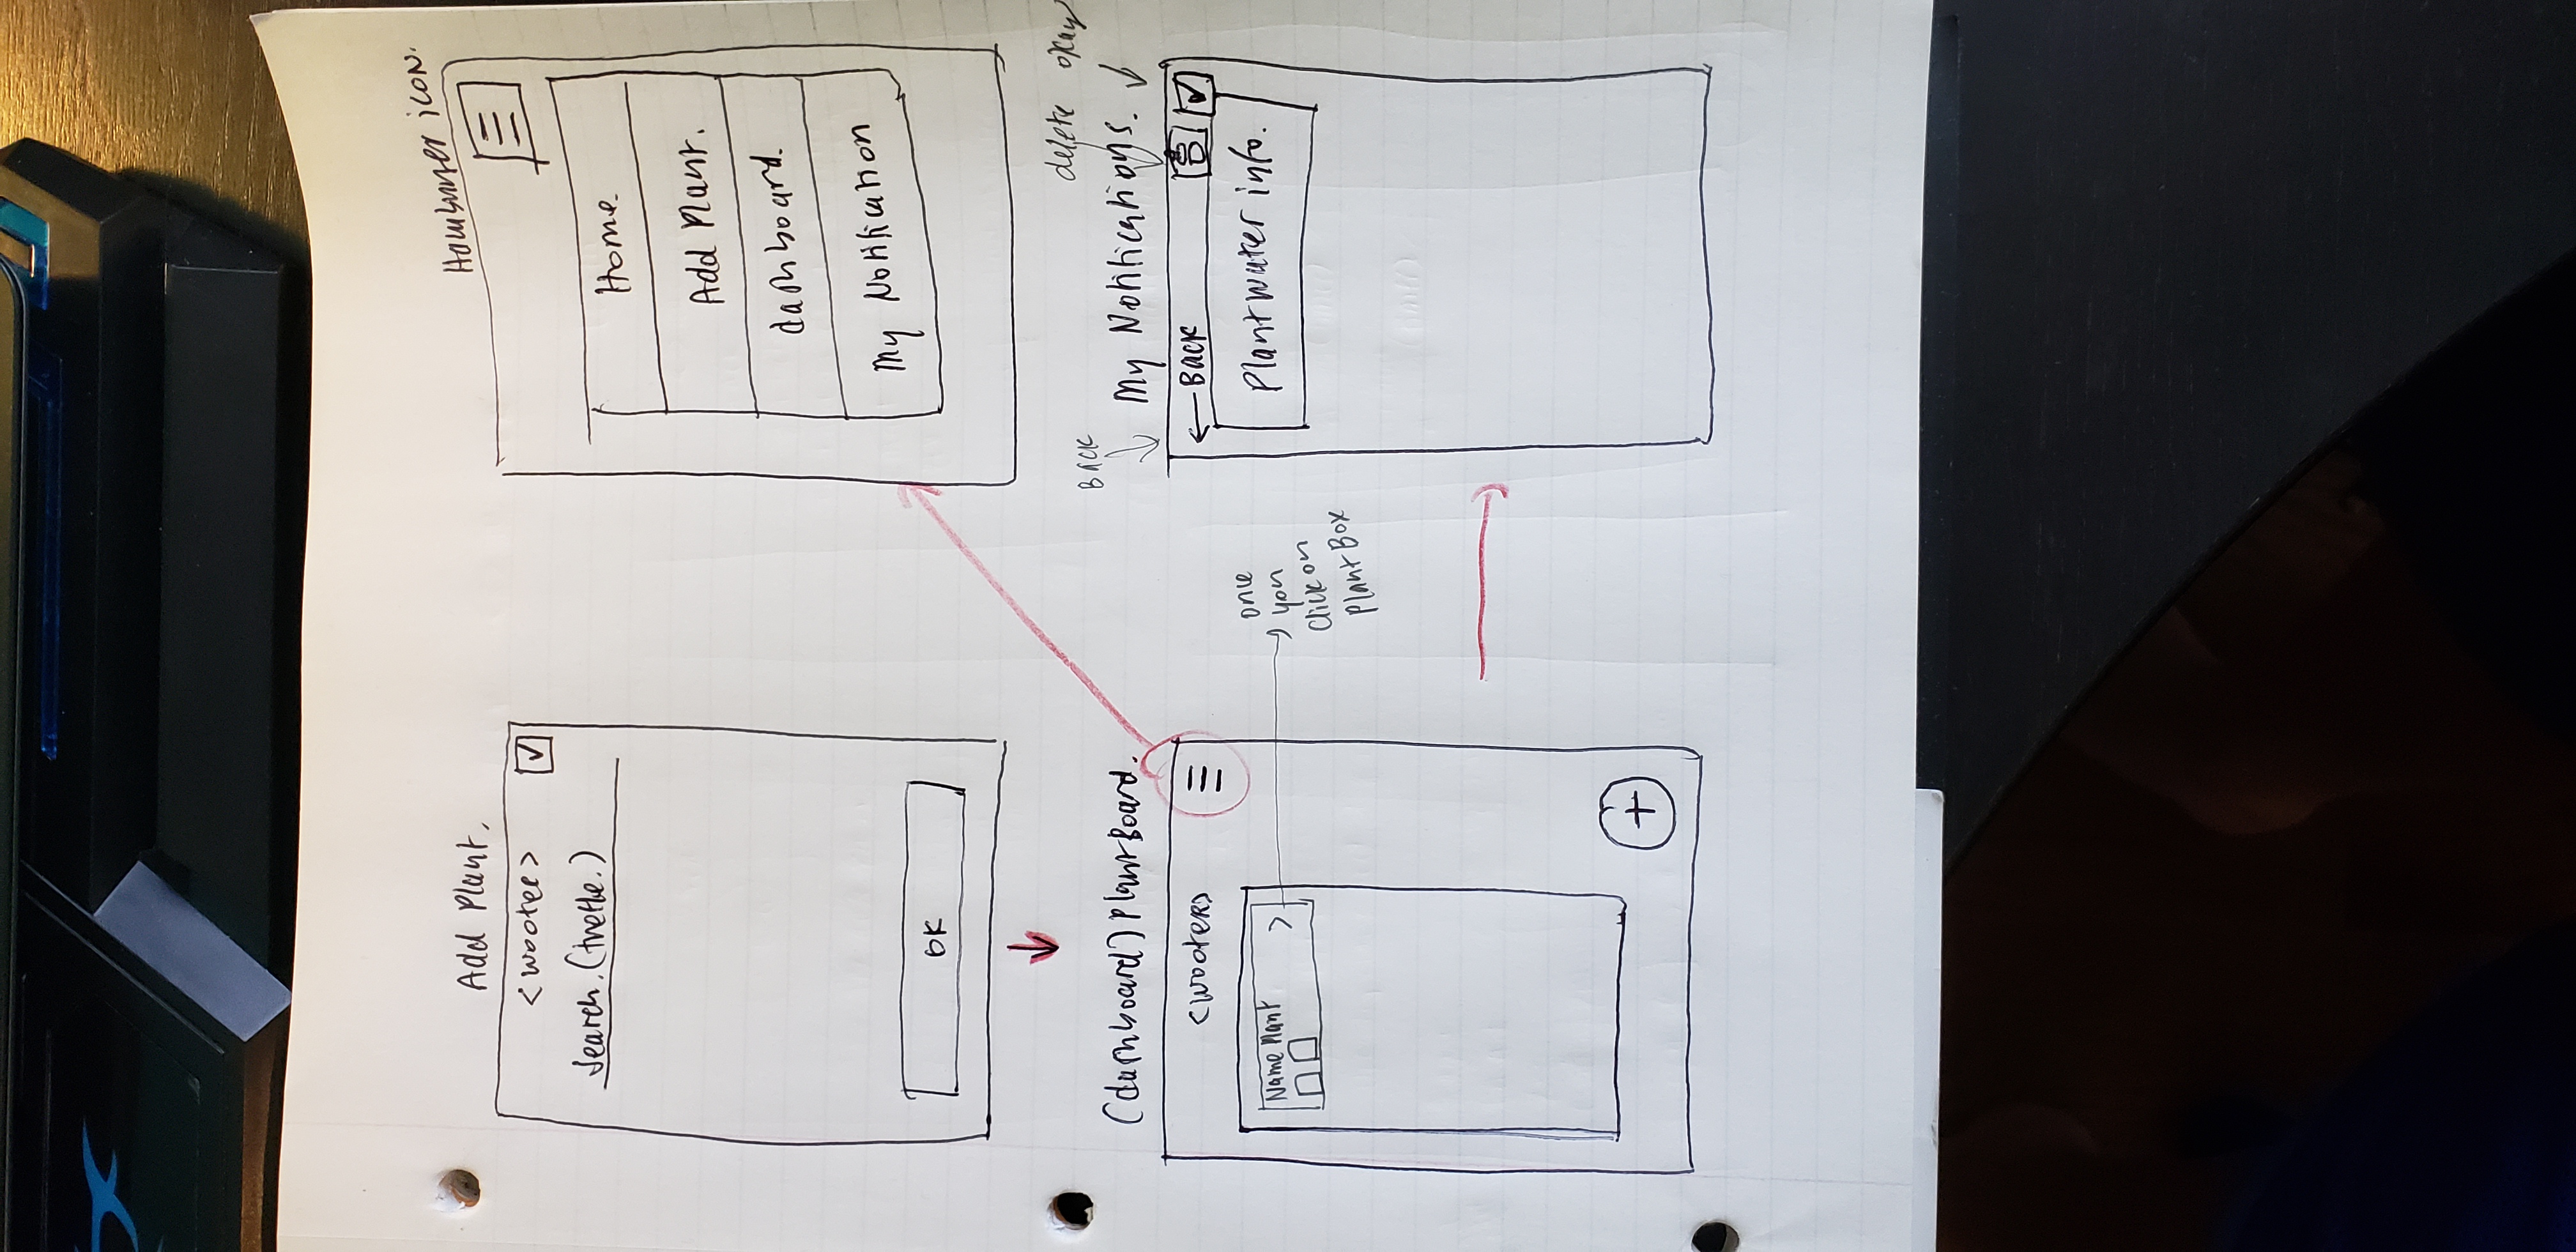 Add Plant.
<wooter>
Search. (trefle.)
OK
Hamburger icon.
Home.
Add Plant.
dashboard.
My Notification
(dashboard) PlantBoard.
<wooter>
Name Plant
>
+
once
you
click on
PlantBox
Back
delete okay
My Notifications.
← BACK
Plantwater info.